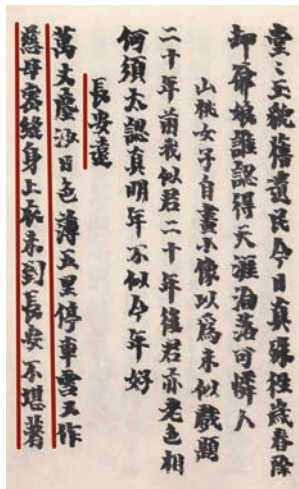 堂〻玉貌舊遺民今日真殊往歲春除
卻爺娘誰認得天涯淪落可憐人
山桃女子自畫小像以為未似戲題
二十年前我似君二十年後君亦老色相
何須太認真明年不似今年好
長安遠
萬丈塵沙日色薄五里停車雪又作
慈母密縫身上衣未到長安不堪著